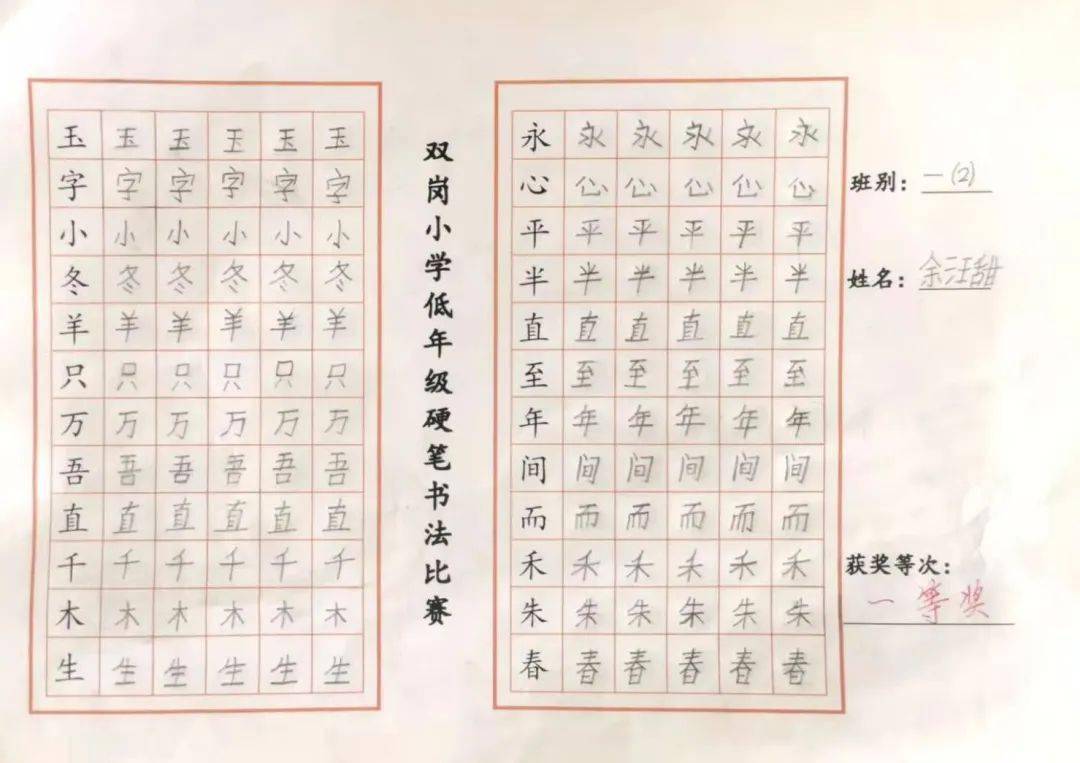 玉玉玉玉玉玉
字字字字字字
小小小小小小
冬冬冬冬冬冬
羊羊羊羊羊羊
只只只只只只
万万万万万万
吾吾吾吾吾吾
直直直直直直
千千千千千千
木木木木木木
生生生生生生
双岗小学低年级硬笔书法比赛
永永永永永永
心心心心心心
平平平平平平
半半半半半半
直直直直直直
至至至至至至
年年年年年年
间间间间间间
而而而而而而
禾禾禾禾禾禾
朱朱朱朱朱朱
春春春春春春
班别：一(2)
姓名：余汪甜
获奖等次：
一等奖